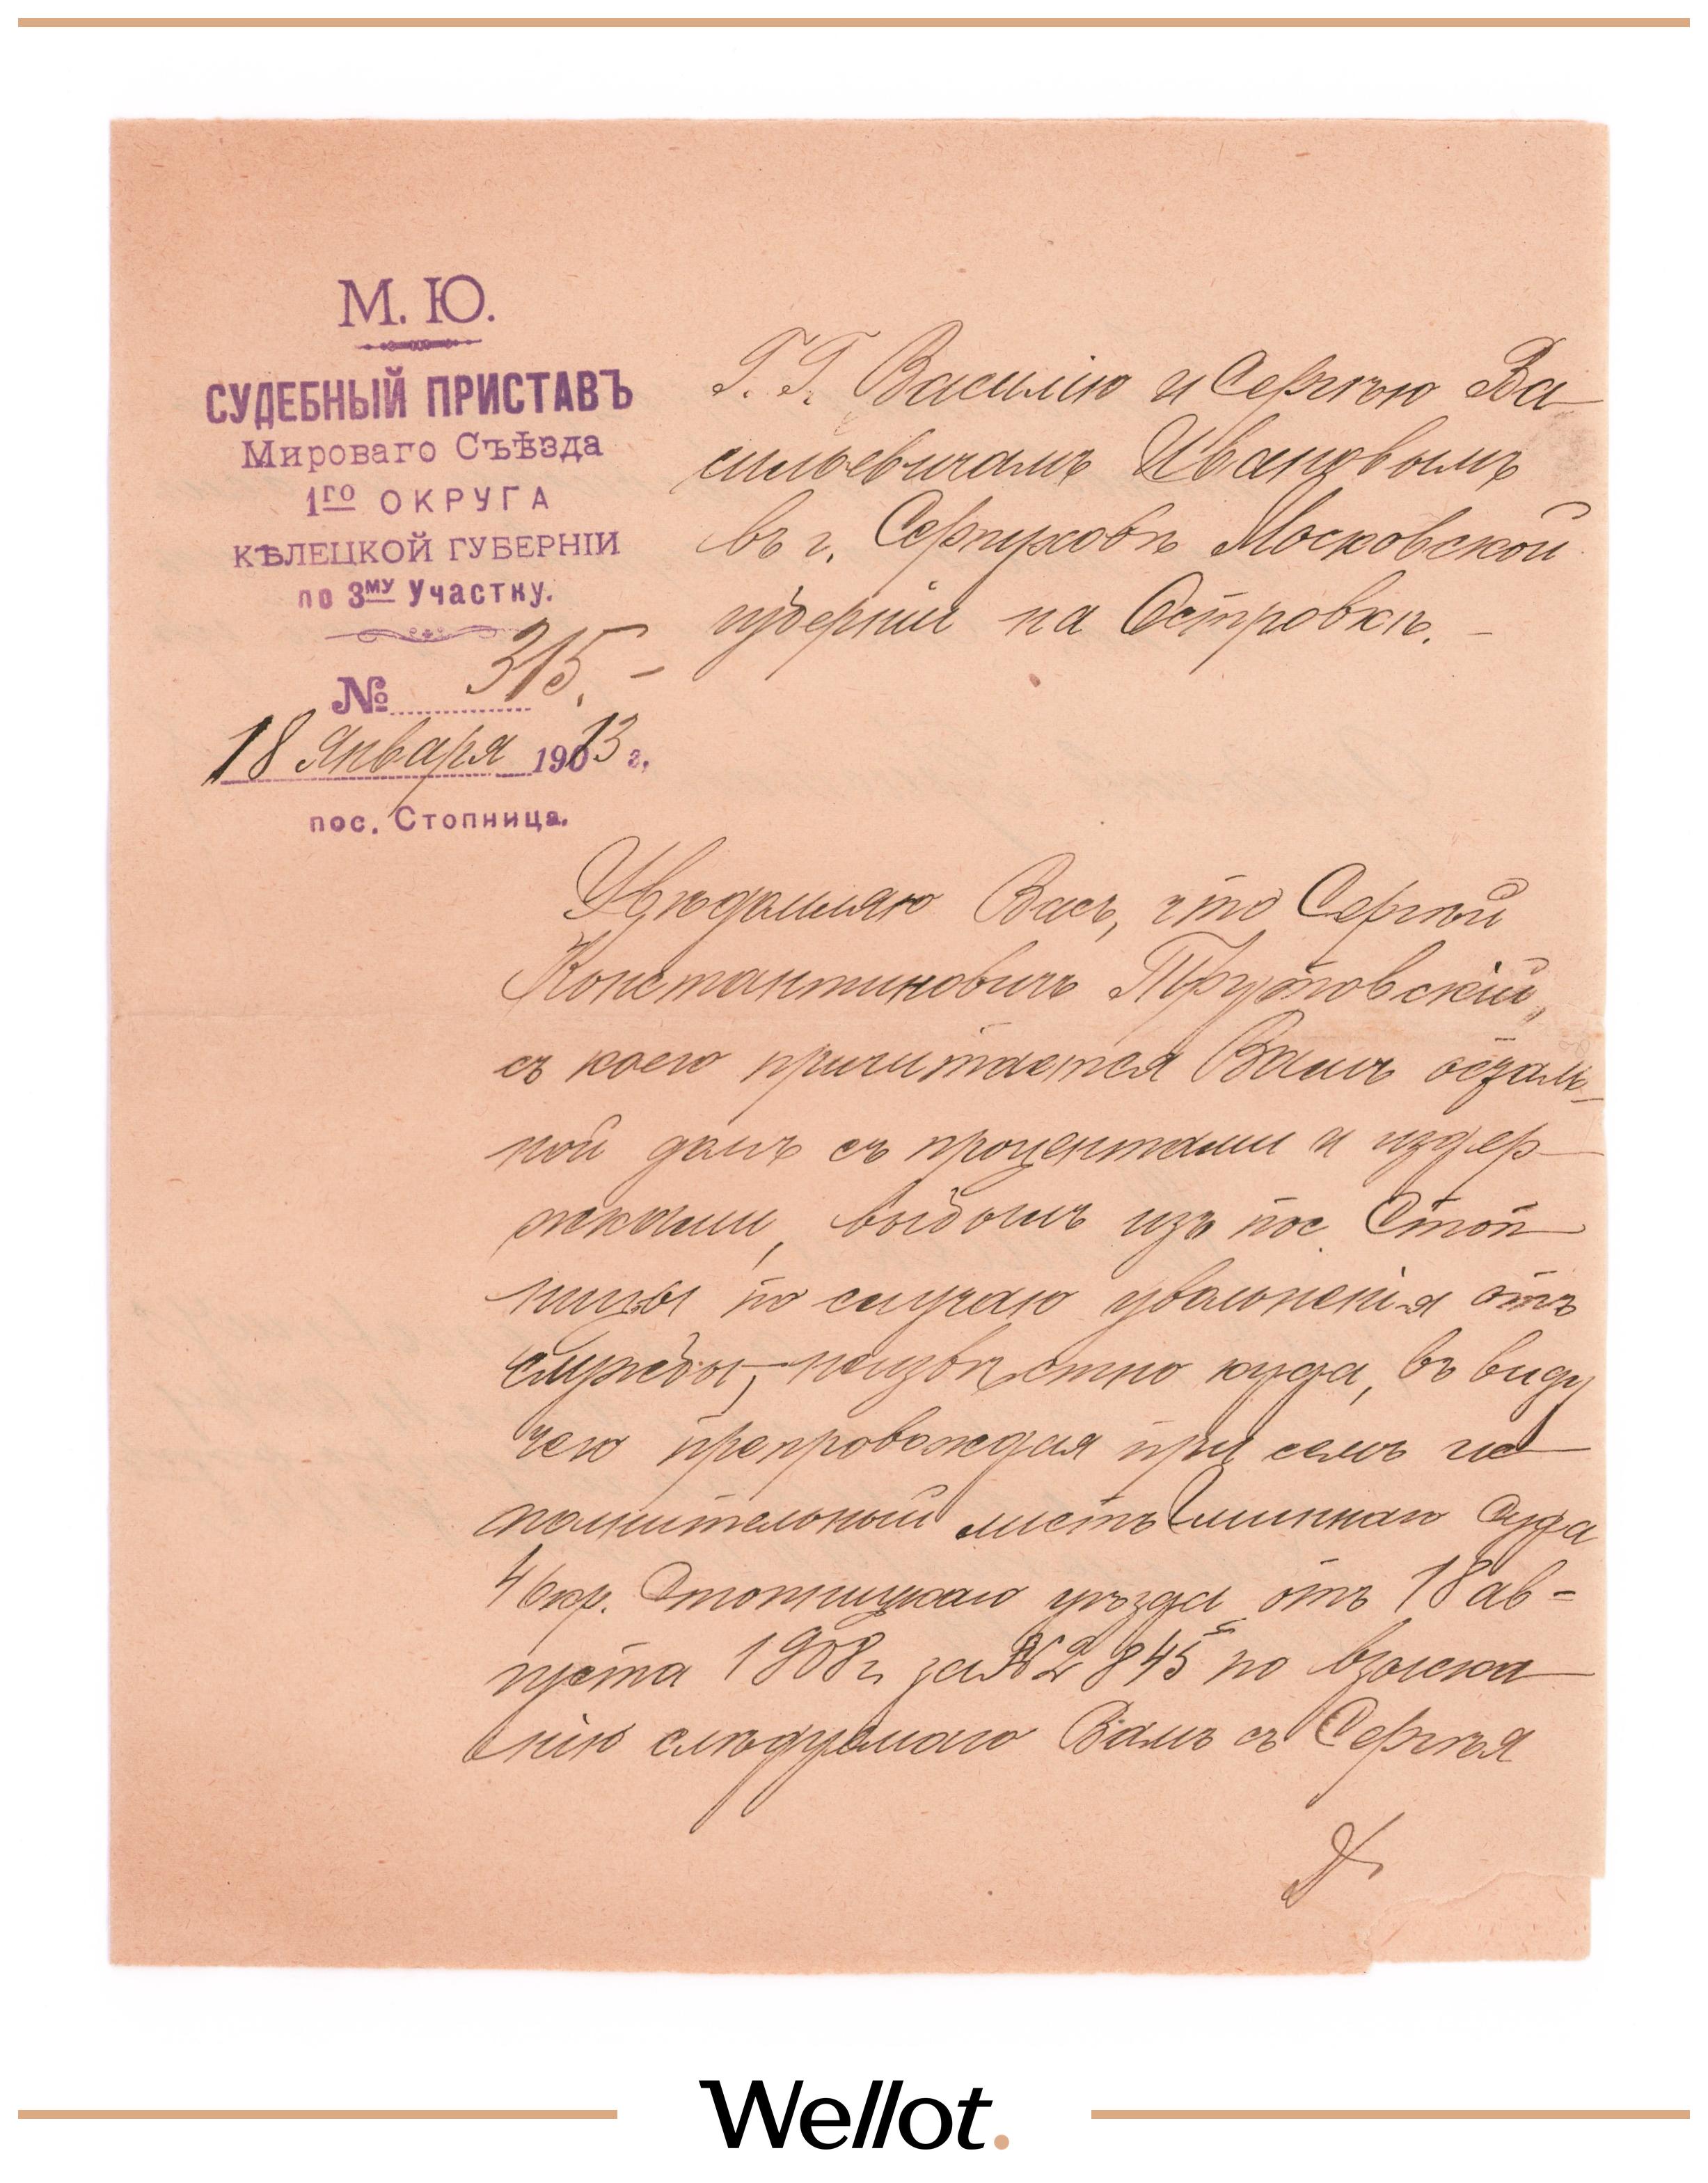 М. Ю.
СУДЕБНЫЙ ПРИСТАВЪ
Мироваго Съѣзда
1го ОКРУГА
КѢЛЕЦКОЙ ГУБЕРНІИ
по 3му Участку.
№ 315.-
18 Января 1913 г.
пос. Стопница.
Г.Г. Василію и Сергѣю Ва-
сильевичамъ Ивановымъ
въ г. Серпуховѣ Московской
губерніи на Островкѣ. -
Увѣдомляю Васъ, что Сергѣй
Константиновичъ Прутовскій,
съ коего причитается Вамъ
долгъ съ процентами и издер-
жками, выбылъ изъ пос. Стоп-
ницы по случаю увольненія отъ
службы, неизвѣстно куда, въ виду
чего препровождая при семъ ис-
полнительный листъ Гминнаго Суда
4 Окр. Стопницкаго уѣзда отъ 18 ав-
густа 1908 г. за № 2845 по взыска-
нію слѣдуемаго Вамъ съ Сергѣя
Wellot.